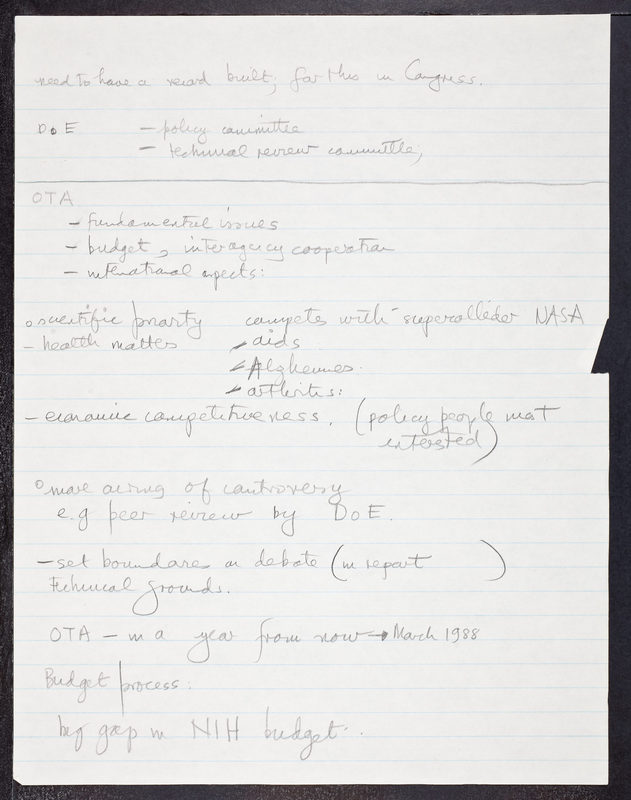 need to have a record built; for this in Congress.
DoE - policy committee
- technical review committee;
OTA
- fundamental issues
- budget, interagency cooperation
- international aspects:
o scientific priority competes with supercollider NASA
- health matters - aids
- Alzheimers.
- arthritis:
- economic competitiveness. (policy people most
interested)
o more airing of controversy
e.g peer review by DoE.
- set boundaries on debate (in report )
technical grounds.
OTA - in a year from now → March 1988
Budget process:
big gap in NIH budget..